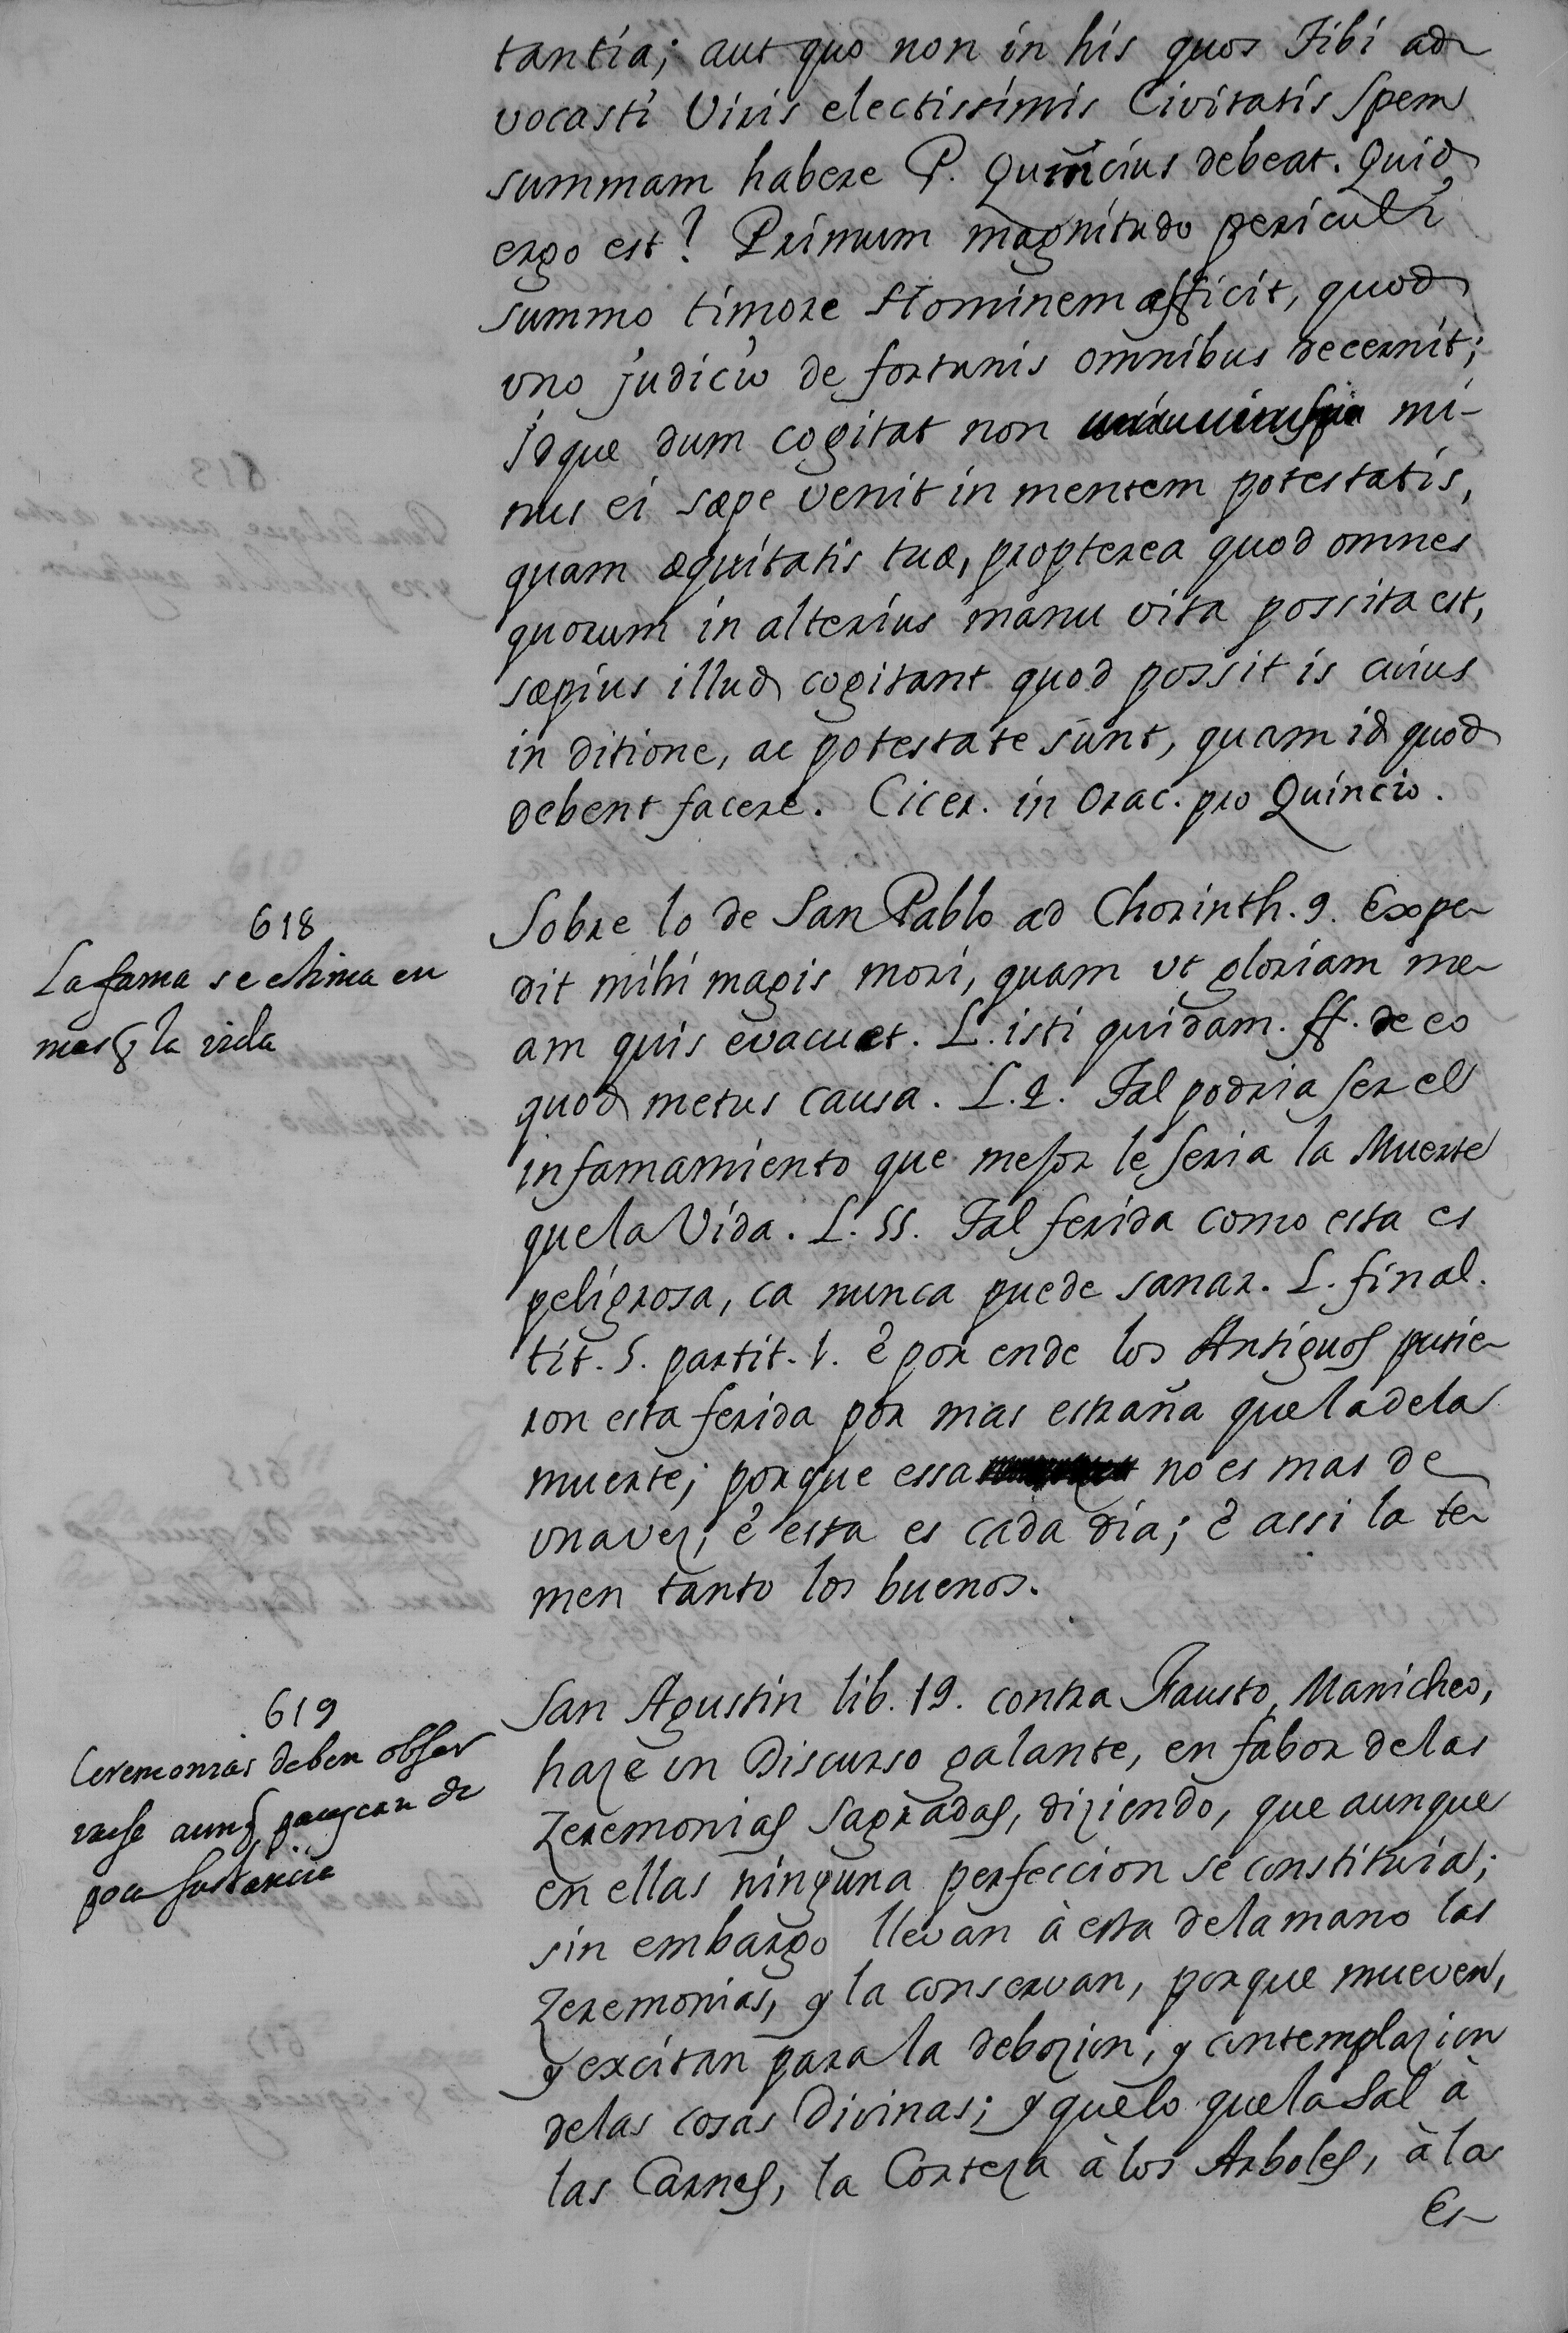 tantia; aut quo non in his quos Tibi ad-
vocasti Viris electissimis Civitatis Spem
summam habere P. Quincius debeat. Quid
ergo est? Primum magnitudo periculi
summo timore Hominem afficit, quod
uno judicio de fortunis omnibus decernit;
idque dum cogitat non mi-
nus ei sæpe venit in mentem potestatis,
quam æquitatis tuæ, propterea quod omnes
quorum in alterius manu vita possita est,
sæpius illud cogitant quod possit is cuius
in ditione, ac potestate sunt, quam id quod
debent facere. Cicer. in Orac. pro Quincio.
618
La fama se estima en
mas q la vida
Sobre lo de San Pablo ad Chorinth. 9. Expe-
dit mihi magis mori, quam ut gloriam me-
am quis evacuet. L. isti quidam. ff. de eo
quod metus causa. L. 2. Tal podria ser el
infamamiento que mejor le seria la Muerte
que la Vida. L. 55. Tal ferida como esta es
peligrosa, ca nunca puede sanar. L. final.
tit. 5. partit. 1. è por ende los Antiguos pusie-
ron esta ferida por mas estraña que la de la
muerte; porque essa no es mas de
una vez; è esta es cada dia; è assi la te-
men tanto los buenos.
619
Ceremonias deben obser
varse aunq parezcan de
poca sustancia
San Agustin lib. 19. contra Fausto, Manicheo,
haze un Discurso galante, en fabor de las
Zeremonias Sagradas, diziendo, que aunque
en ellas ninguna perfeccion se constituia;
sin embargo llevan à esta de la mano las
Zeremonias, y la conservan, porque mueven,
y excitan para la debozion, y contemplazion
de las cosas Divinas; y que lo que la Sal à
las Carnes, la Corteza à los Arboles, à la
Es-